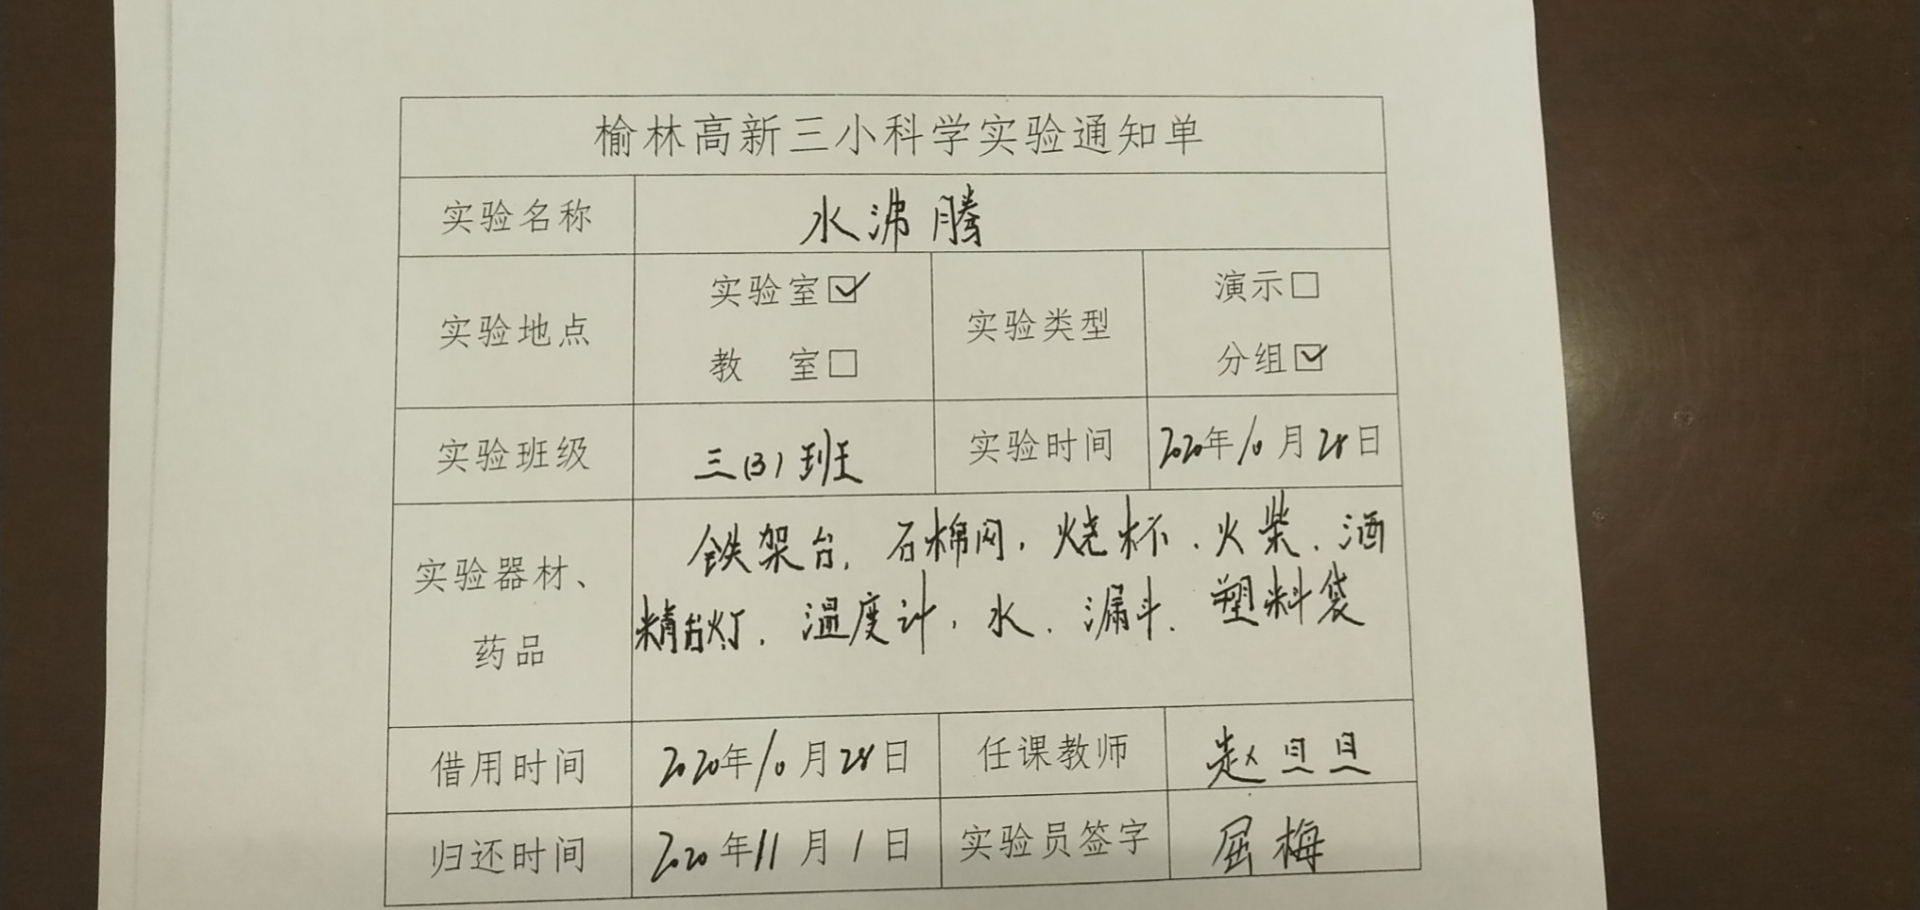 榆林高新三小科学实验通知单
实验名称 水沸腾
实验地点 实验室☑ 教 室□ 实验类型 演示□ 分组☑
实验班级 三(3)班 实验时间 2020年10月28日
实验器材、药品
铁架台、石棉网、烧杯、火柴、酒
精台灯、温度计、水、漏斗、塑料袋
借用时间 2020年10月28日 任课教师 赵旦旦
归还时间 2020年11月1日 实验员签字 屈梅